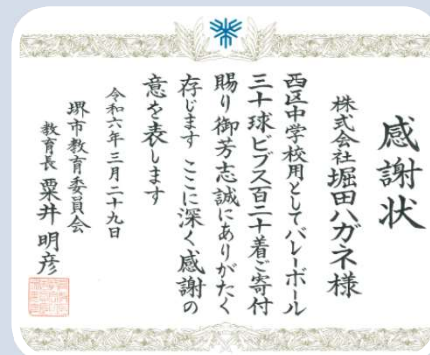 感謝状
株式会社堀田ハガネ様
西区中学校用としてバレーボール
三十球ビブス百二十着ご寄付
賜り御芳志誠にありがたく
存じます ここに深く感謝の
意を表します
令和六年三月二十九日
堺市教育委員会
教育長 粟井明彦